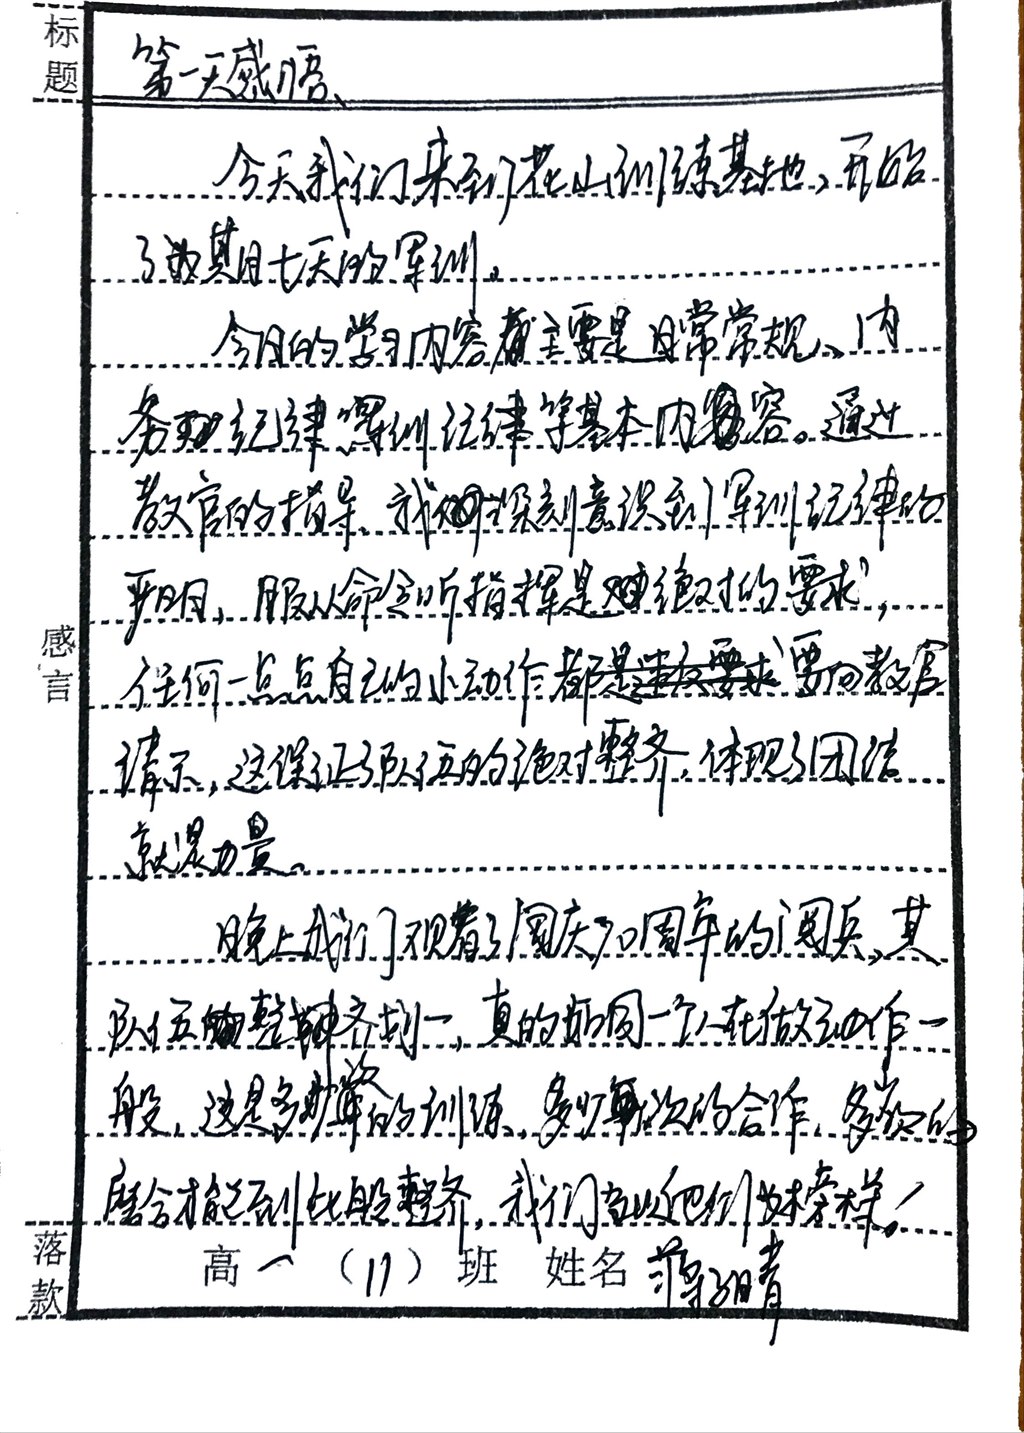 标题
第一天感悟
今天我们来到花山训练基地,开始
了为期七天的军训。
今日的学习内容主要是日常常规、内
务纪律军训纪律等基本内容。通过
教官的指导、我深刻意识到军训纪律的
严明、服从命令听指挥是绝对的要求,
任何一点点自己的小动作都要向教官
请示,这保证了队伍的绝对整齐,体现了团结
就是力量。
晚上我们观看了国庆70周年的阅兵,其
队伍整齐划一,真的如同一个人在做动作一
般,这是多少次的训练,多少次的合作,多少次的
磨合才能达到此般整齐,我们当以他们为榜样!
感言
落款
高一(17)班 姓名 蒋